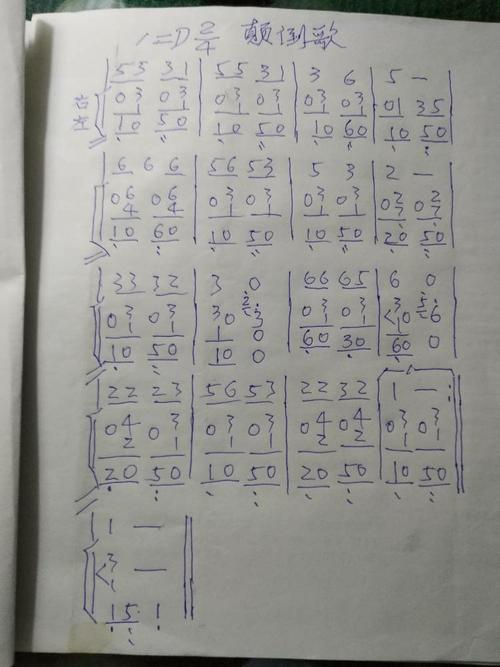 1=D 2/4 颠倒歌
53 31 | 55 31 | 3 6 | 5 — |
03 03 | 03 03 | 03 03 | 01 35
1 1 | 1 1 | 1 1
10 50 | 10 50 | 10 60 | 10 50
6 6 6 | 56 53 | 5 3 | 2 — |
06 06 | 03 03 | 03 03 | 02 02
4 4 | 1 1 | 1 1 | 7 7
10 60 | 10 50 | 10 50 | 20 50
33 32 | 3 0 | 66 65 | 6 0
03 03 | 30 3 | 03 03 | 3 0 6
1 1 | 1 0 | 1 1 | 1
10 50 | 10 0 | 60 30 | 60 0
22 23 | 56 53 | 22 32 | 1 — :
04 03 | 03 03 | 04 04 | 03 03
2 1 | 1 1 | 2 2 | 1 1
20 50 | 10 50 | 20 50 | 10 50
1 —
3 —
1
15 1